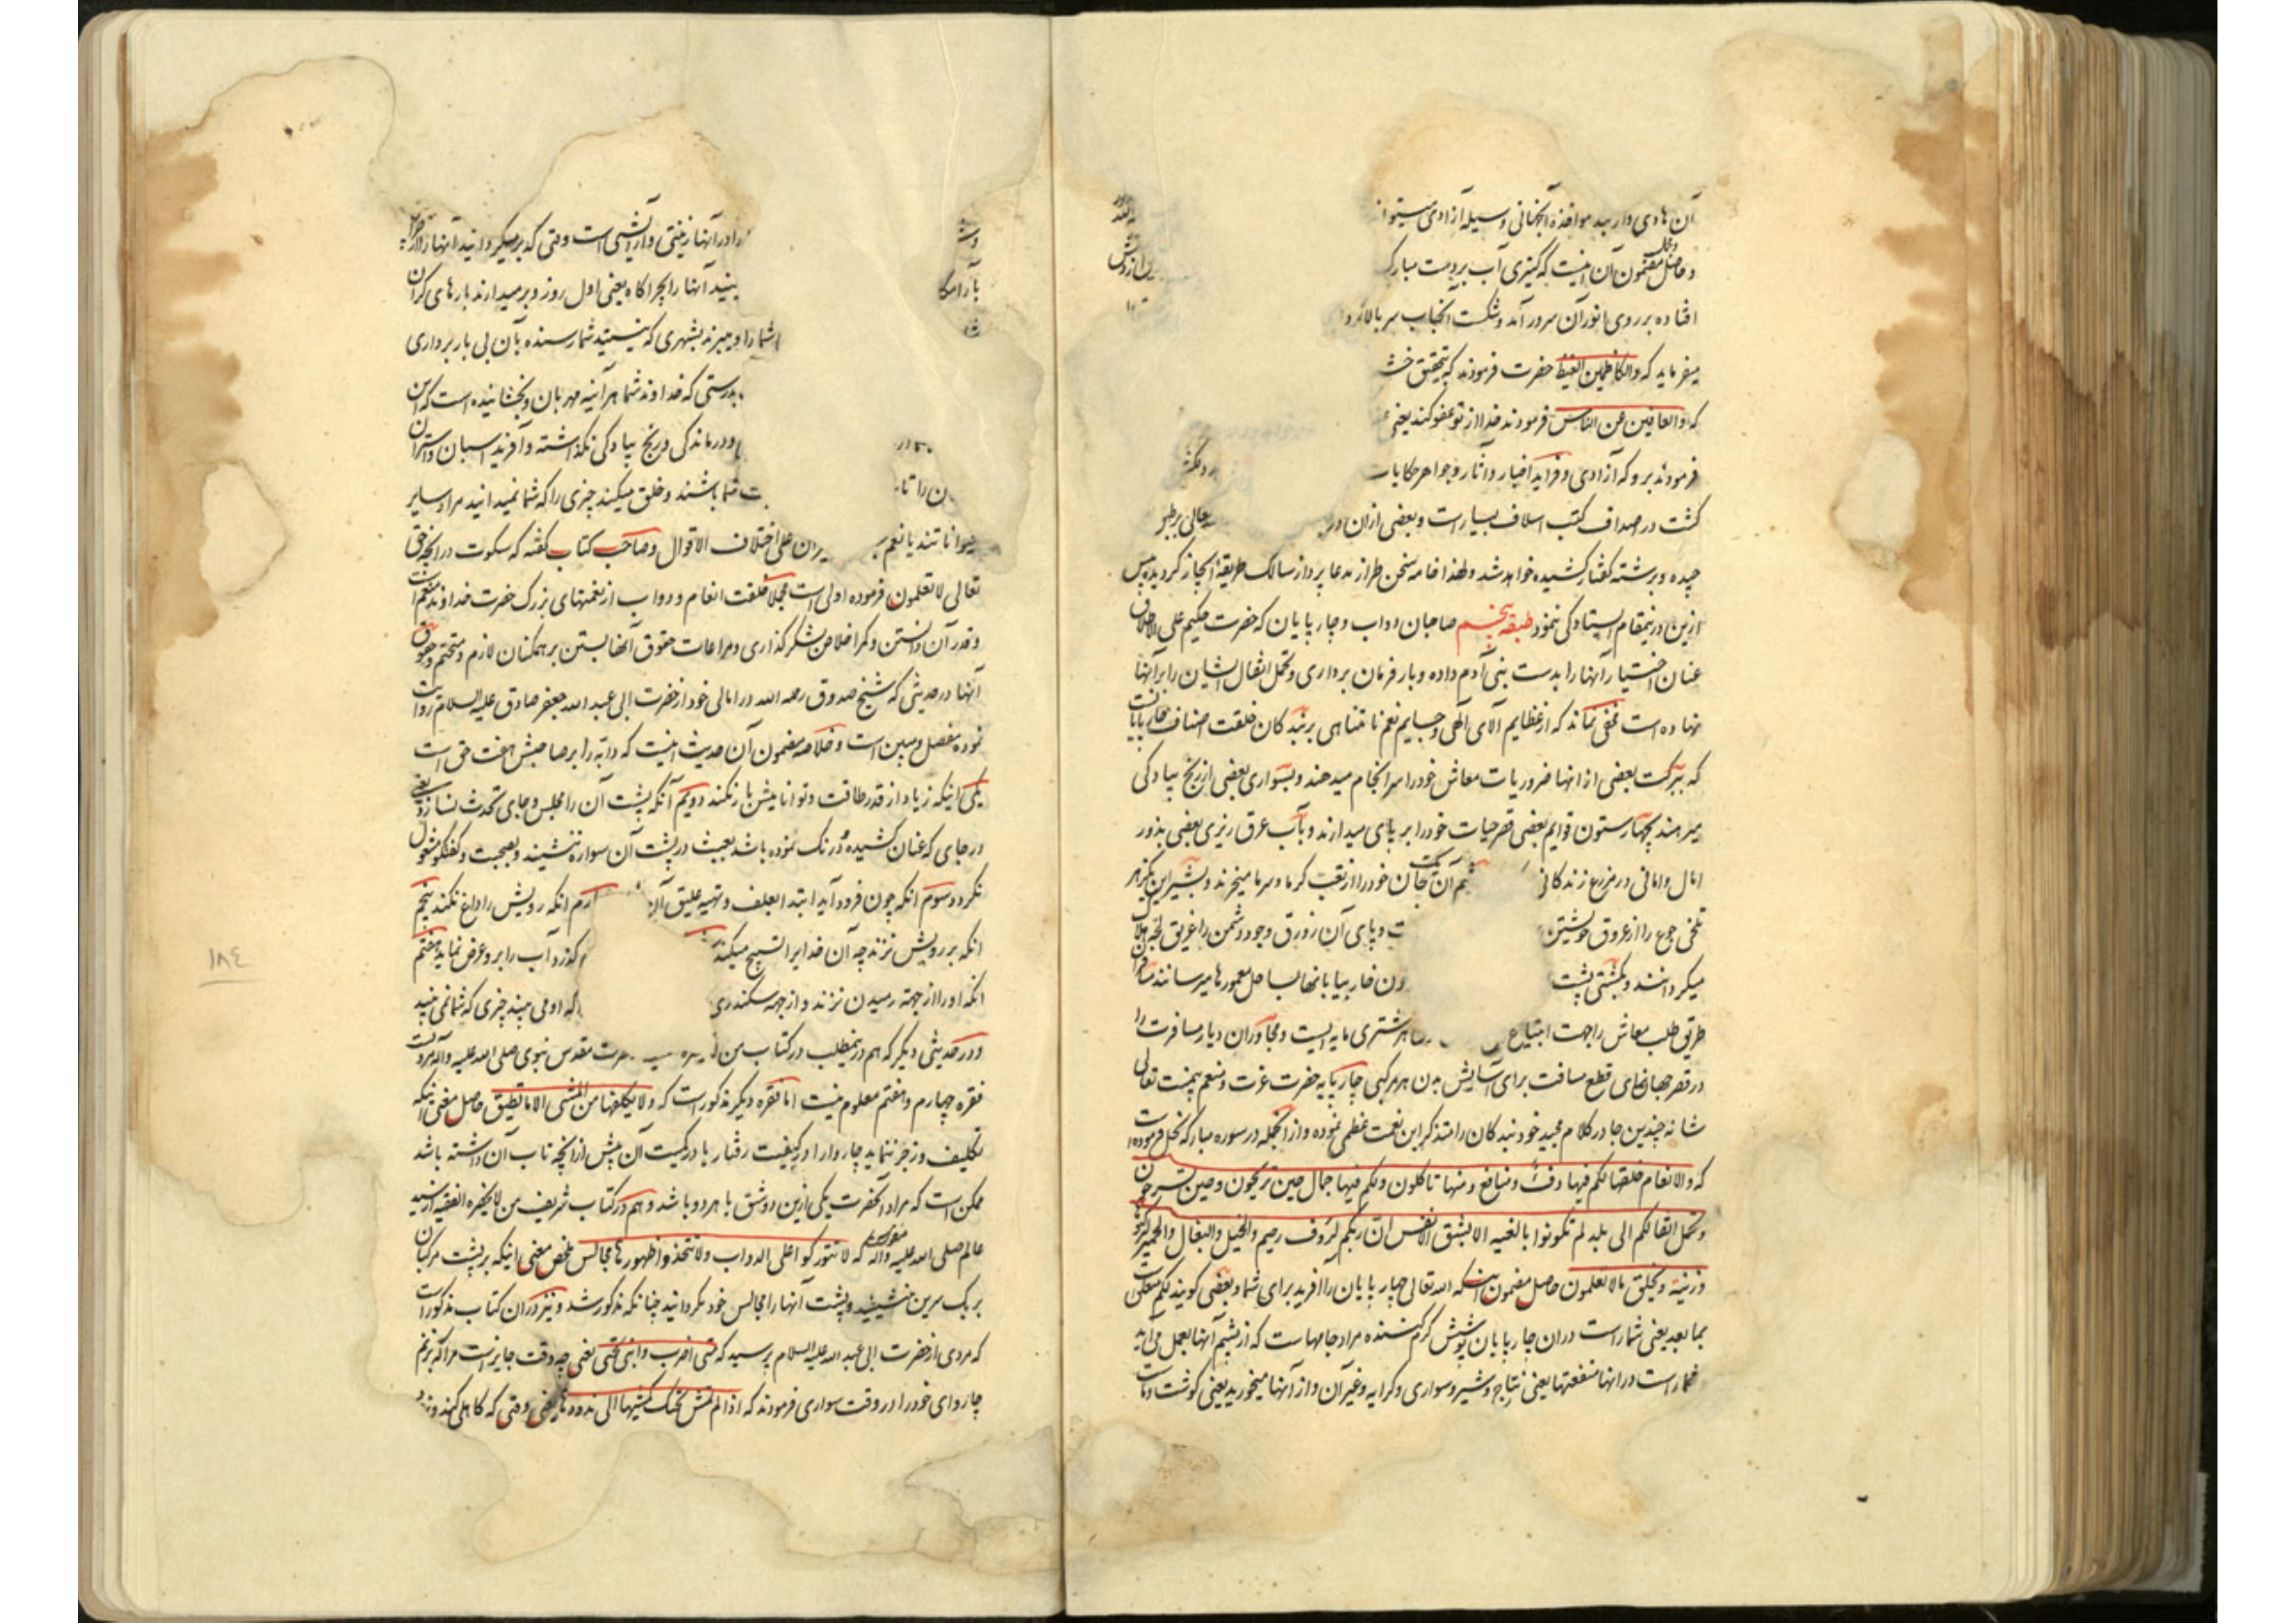 آن هادی وارسید مواخذه آنجنانی وسیله آزادی میتوا
وحاصل مضمون آن اینست که کنیزی آب بردست مبارک
افتاده برروی انور آن سرور آمد وشکست آنجناب سر بالا
میفرماید که والکاظمین الغیظ حضرت فرمودند که بتحقیق خش
که والعافین عن الناس فرمودند خدا از تو عفو کند یعنی
فرمودند برو که آزادی وفراید اخبار وآثار وجواهر حکایات
گشت در اصداف کتب اسلاف بسیار است وبعضی ازان در عالی برطبر
چیده وبرشته گفتار کشیده خواهد شد ولهذا خامه سخن طراز مدعا پرداز سالک طریقهٔ ایجاز گردیده پس
ازین درینمقام ایستادگی ننمود طبقه پنجم صاحبان دواب وچارپایان که حضرت حکیم علی الاطلاق
عنان اختیار آنها را بدست بنی آدم داده وبار فرمان برداری وتحمل اثقال ایشان را برآنها
نهاده است مخفی نماند که از عظایم آلای الهی وجسایم نعم نامتناهی بر بندکان خلقت اصناف چارپایانست
که ببرکت بعضی از انها ضروریات معاش خود را سرانجام میدهند وبسواری بعضی از رنج پیادگی
میرهند بچهارستون قوایم بعضی قصر حیات خود را برپای میدارند وبآب عرق ریزی بعضی بذور
امال وامانی در مزرع زندکانی آن جان خود را از تعب گرما وسرما میخرند وبشیر این یک زهر
تلخی جوع را از عروق خویشتن ت وپای آن زورق وجود دشمن را غریق لجه هلاک
میکردانند وبکشتی پشت ون خار بیابانها بساحل معمورها میرسانند مسافران
طریق طلب معاش را جهت ابتیاع هر شتری مایه ایست ومجاوران دیار مسافرت را
در قصر جهان نمای قطع مسافت برای آسایش بدن هر مرکبی چارپایه حضرت عزت ومنعم بیمنت تعالی
شانه چندین جا در کلام مجید خود بندکان را متذکر این نعمت عظمی نموده واز آنجمله در سوره مبارکه نحل فرموده است
که والانعام خلقها لکم فیها دفء ومنافع ومنها تاکلون ولکم فیها جمال حین تریحون وحین تسرحون
وتحمل اثقالکم الی بلد لم تکونوا بالغیه الا بشق الانفس ان ربکم لرؤف رحیم والخیل والبغال والحمیر لترکبوها
وزینة ویخلق ما لاتعلمون حاصل مضمون اینکه الله تعالی چهارپایان را آفرید برای شما وبعضی کویند لکم متعلق
بما بعد یعنی شما راست دران چارپایان پوشش گرم کننده مراد جامهاست که از پشم آنها بعمل می آید
شما راست در انها منفعتها یعنی نتاج وشیر وسواری وکرایه وغیر آن واز آنها میخورید یعنی گوشت
را در آنها زینتی وآرایشی است وقتی که برمیگردانید آنها را از چرا
بینید آنها را بچراگاه یعنی اول روز وبرمیدارند بارهای گران
شما را ومیبرند بشهری که نیستید شما رسنده بآن بی بار برداری
بدرستی که خداوند شما هرآینه مهربان وبخشاینده است که این
ودرماندگی ورنج پیادگی نگذاشته وآفرید اسبان واستران
ن را تا ت شما باشند وخلق میکند چیزی را که شما نمیدانید مراد سایر
حیواناتند یا نعم بر یران علی اختلاف الاقوال وصاحب کتاب گفته که سکوت در آنچه حق
تعالی لاتعلمون فرموده اولی است مجملا خلقت انعام ودواب از نعمتهای بزرگ حضرت خداوند منعم است
وقدر آن دانستن وکمر اخلاص بشکرگذاری ومراعات حقوق آنها بستن بر همکنان لازم ومتحتم وحقوق
آنها در حدیثی که شیخ صدوق رحمه الله در امالی خود از حضرت ابی عبد الله جعفر صادق علیه السلام روایت
نموده مفصل ومبین است وخلاصه مضمون آن حدیث اینست که دابه را بر صاحبش هفت حق است
یکی اینکه زیاد از قدر طاقت وتوانایش بار نکند دویم آنکه پشت آن را مجلس وجای تحدث نسازد یعنی
در جای که عنان کشیده درنگ نموده باشد بعبث در پشت آن سواره ننشیند وبصحبت وگفتگو مشغول
نگردد سوم انکه چون فرود آید ابتدا بعلف وتهیه علیق آن ارم انکه رویش را داغ نکند پنجم
انکه بر رویش نزند چه آن خدا را تسبیح میکند گذرد آب را برو عرض نماید هفتم
انکه او را از جهة رمیدن نزند واز جهه سکندری که او می بیند چیزی که شما نمی بینید
ودر حدیثی دیگر که هم درینمطلب در کتاب من حضرت مقدس نبوی صلی الله علیه وآله مرویست
فقره چهارم وهفتم معلوم نیست اما فقره دیگر مذکور است که ولا یکلفها من المشی الا ما تطیق حاصل معنی اینکه
تکلیف وزجر ننماید چاروا را در کیفیت رفتار یا در کمیت آن بیش از آنچه تاب آن داشته باشد
ممکن است که مراد آنحضرت یکی ازین دو شق یا هر دو باشد وهم در کتاب شریف من لا یحضره الفقیه از سید
عالم صلی الله علیه وآله که لا تتورکوا علی الدواب ولا تتخذوا ظهورها مجالس ملخص معنی اینکه بر پشت مرکبان
بر یک سرین ننشینید وپشت آنها را مجالس خود مگردانید چنانکه مذکور شد ونیز دران کتاب مذکور است
که مردی از حضرت ابی عبد الله علیه السلام پرسید که متی اضرب دابتی تحتی یعنی چه وقت جایز است مرا که بزنم
چاروای خود را در وقت سواری فرمودند که اذا لم تمش تحتک کمشیها الی مذودها یعنی وقتی که کاهلی کند
١٨٤